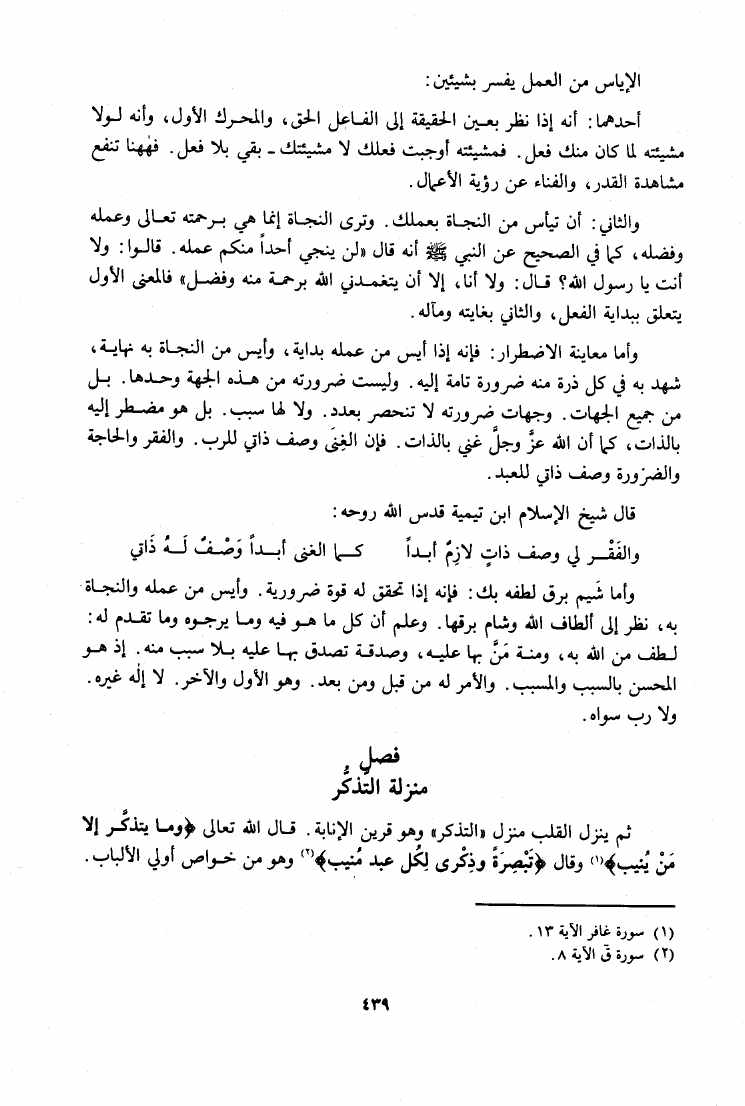 الإياس من العمل يفسر بشيئين:
أحدهما: أنه إذا نظر بعين الحقيقة إلى الفاعل الحق، والمحرك الأول، وأنه لولا
مشيئته لما كان منك فعل. فمشيئته أوجبت فعلك لا مشيئتك ـ بقي بلا فعل. فههنا تنفع
مشاهدة القدر، والفناء عن رؤية الأعمال.
والثاني: أن تيأس من النجاة بعملك. وترى النجاة إنما هي برحمته تعالى وعمله
وفضله، كما في الصحيح عن النبي ﷺ أنه قال «لن ينجي أحداً منكم عمله. قالوا: ولا
أنت يا رسول الله؟ قال: ولا أنا، إلا أن يتغمدني الله برحمة منه وفضل» فالمعنى الأول
يتعلق ببداية الفعل، والثاني بغايته ومآله.
وأما معاينة الاضطرار: فإنه إذا أيس من عمله بداية، وأيس من النجاة به نهاية،
شهد به في كل ذرة منه ضرورة تامة إليه. وليست ضرورته من هذه الجهة وحدها. بل
من جميع الجهات. وجهات ضرورته لا تنحصر بعدد. ولا لها سبب. بل هو مضطر إليه
بالذات، كما أن الله عزَّ وجلَّ غني بالذات. فإن الغِنَى وصف ذاتي للرب. والفقر والحاجة
والضرورة وصف ذاتي للعبد.
قال شيخ الإسلام ابن تيمية قدس الله روحه:
والفَقْر لي وصف ذاتٍ لازمٌ أبداً كما الغنى أبداً وَصْفٌ لَهُ ذَاتي
وأما شَيم برق لطفه بك: فإنه إذا تحقق له قوة ضرورية. وأيس من عمله والنجاة
به، نظر إلى ألطاف الله وشام برقها. وعلم أن كل ما هو فيه وما يرجوه وما تقدم له:
لطف من الله به، ومنة مَنَّ بها عليه، وصدقة تصدق بها عليه بلا سبب منه. إذ هو
المحسن بالسبب والمسبب. والأمر له من قبل ومن بعد. وهو الأول والآخر. لا إله غيره.
ولا رب سواه.
فصل
منزلة التَّذكُّر
ثم ينزل القلب منزل «التذكر» وهو قرين الإنابة. قال الله تعالى ﴿وما يتذكَّر إلا
مَنْ يُنيب﴾(١) وقال ﴿تَبْصِرَةً وذِكْرى لِكُل عبد مُنيب﴾(٢) وهو من خواص أولي الألباب.
(١) سورة غافر الآية ١٣.
(٢) سورة قۤ الآية ٨.
٤٣٩